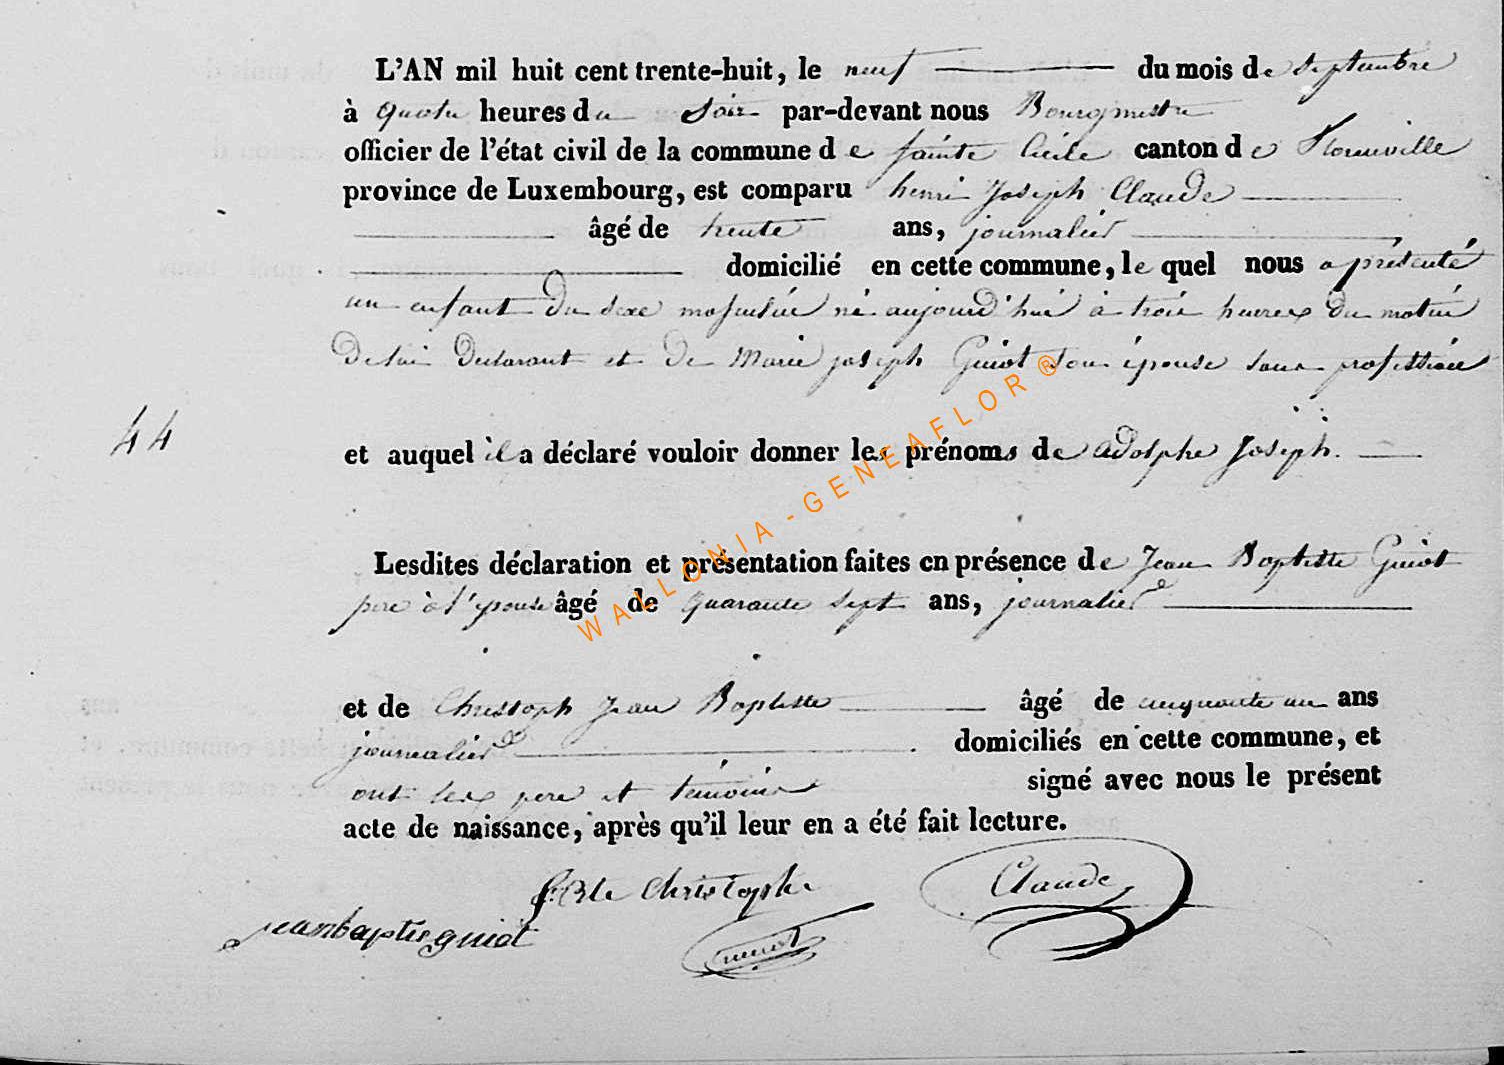 L'AN mil huit cent trente-huit, le neuf du mois de septembre
à quatre heures du soir par-devant nous Bourgmestre
officier de l'état civil de la commune de sainte Cécile canton de Florenville
province de Luxembourg, est comparu henri Joseph Claude
âgé de trente ans, journalier
domicilié en cette commune, le quel nous a présenté
un enfant du sexe masculin né aujourd'hui à trois heures du matin
de lui declarant et de Marie joseph Guiot son épouse sans profession
44
et auquel il a déclaré vouloir donner les prénoms de adolphe Joseph.
Lesdites déclaration et présentation faites en présence de Jean Baptiste Guiot
pere à l'épouse âgé de quarante sept ans, journalier
et de Christoph Jean Baptiste âgé de cinquante un ans
journalier domiciliés en cette commune, et
ont les pere et témoins signé avec nous le présent
acte de naissance, après qu'il leur en a été fait lecture.
J. Bte Christophe Claude
jeanbaptis guiot
WALLONIA - GENEAFLOR ®